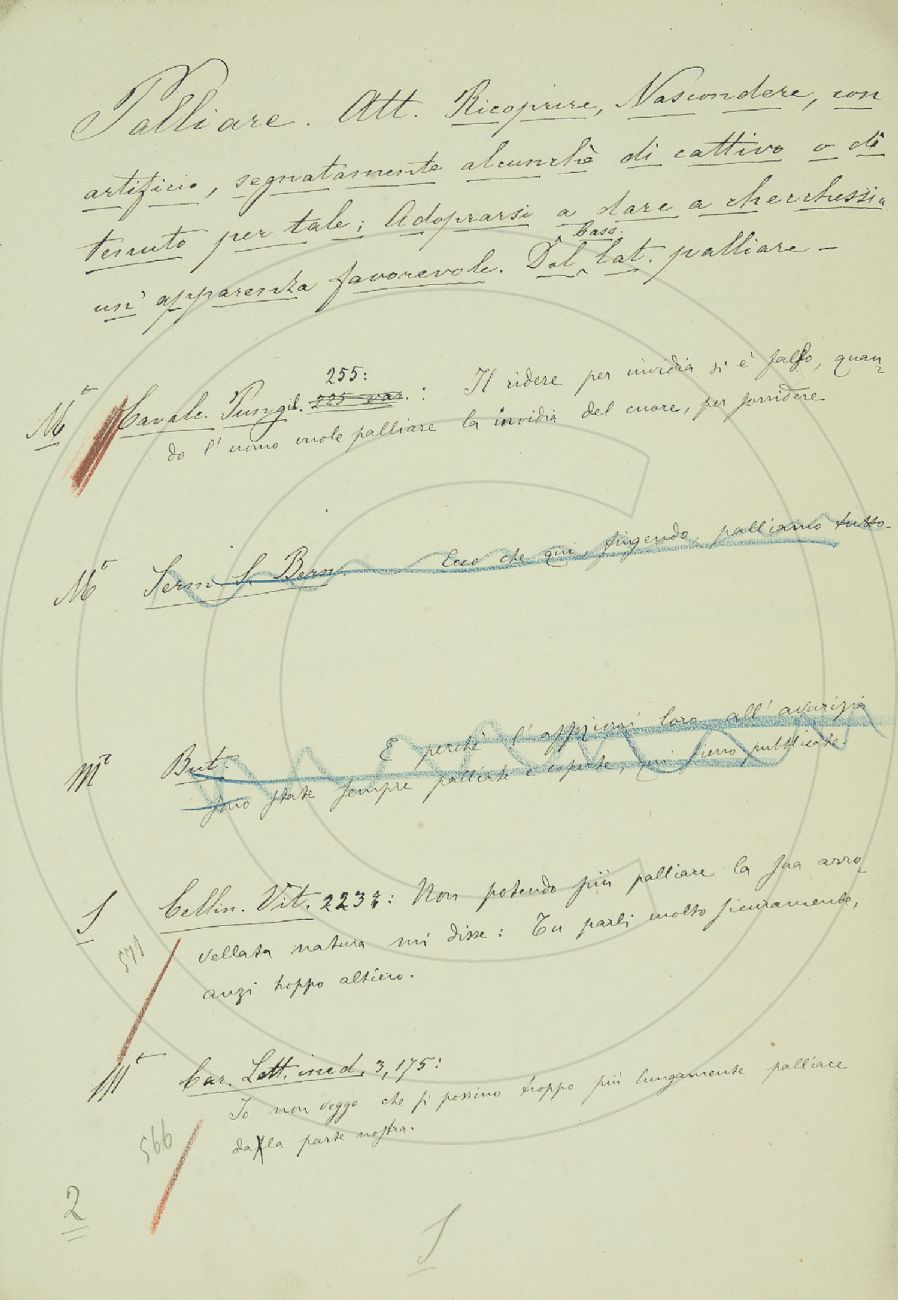 Palliare. Att. Ricoprire, Nascondere, con
artificio, segnatamente alcunchè di cattivo o di
tenuto per tale; Adoprarsi a dare a checchessia
un' apparenza favorevole. Dal basso. lat. palliare –
Mt Cavalc. Pungil. 225 var. 255: Il ridere per invidia si è falso, quan-
do l'uomo vuole palliare la invidia del cuore, per sorridere
Mt Serm. S. Bern. Ecco che qui, fingendo, palliamo tutto-
Mt But. E perchè l'affezioni loro all'avarizia
sono state sempre palliate e coperte, qui sieno pubblicate
S Cellin. Vit. 223: Non potendo più palliare la sua arro-
vellata natura mi disse: Tu parli molto sicuramente,
571
anzi troppo altiero.
Mt Car. Lett. ined. 3, 175:
Io non veggo che si possino troppo più lungamente palliare
dalla parte nostra.
566
2
S